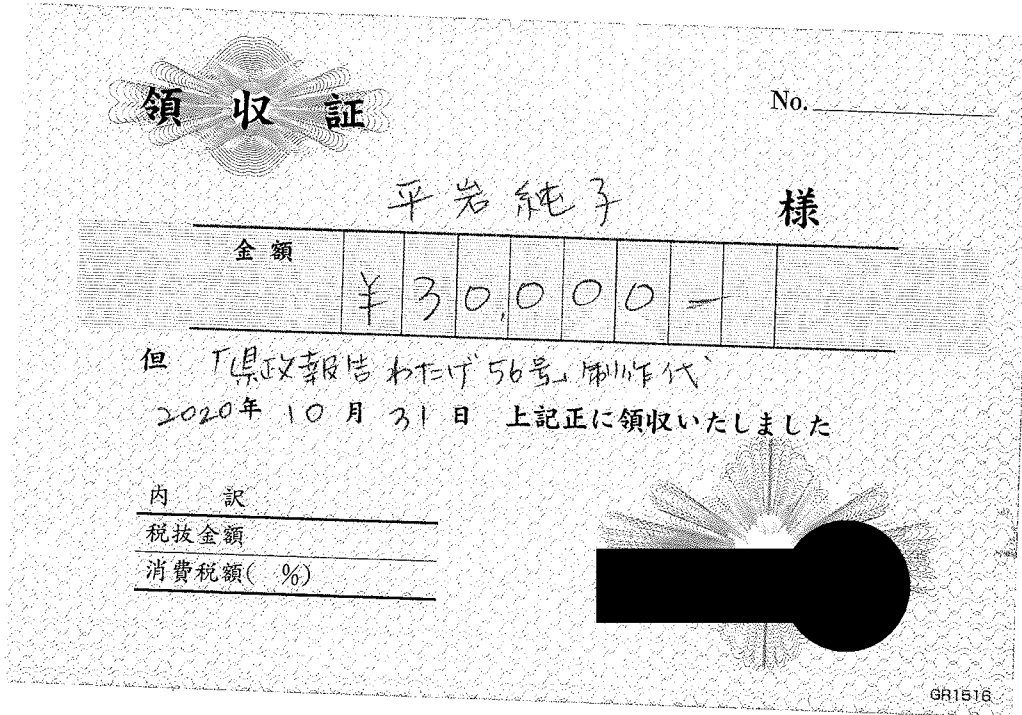 領収証
No.
平岩純子 様
金額 ¥30,000-
但 「県政報告 わたげ 56号」制作代
2020年 10月 31日 上記正に領収いたしました
内 訳
税抜金額
消費税額( %)
GR1516